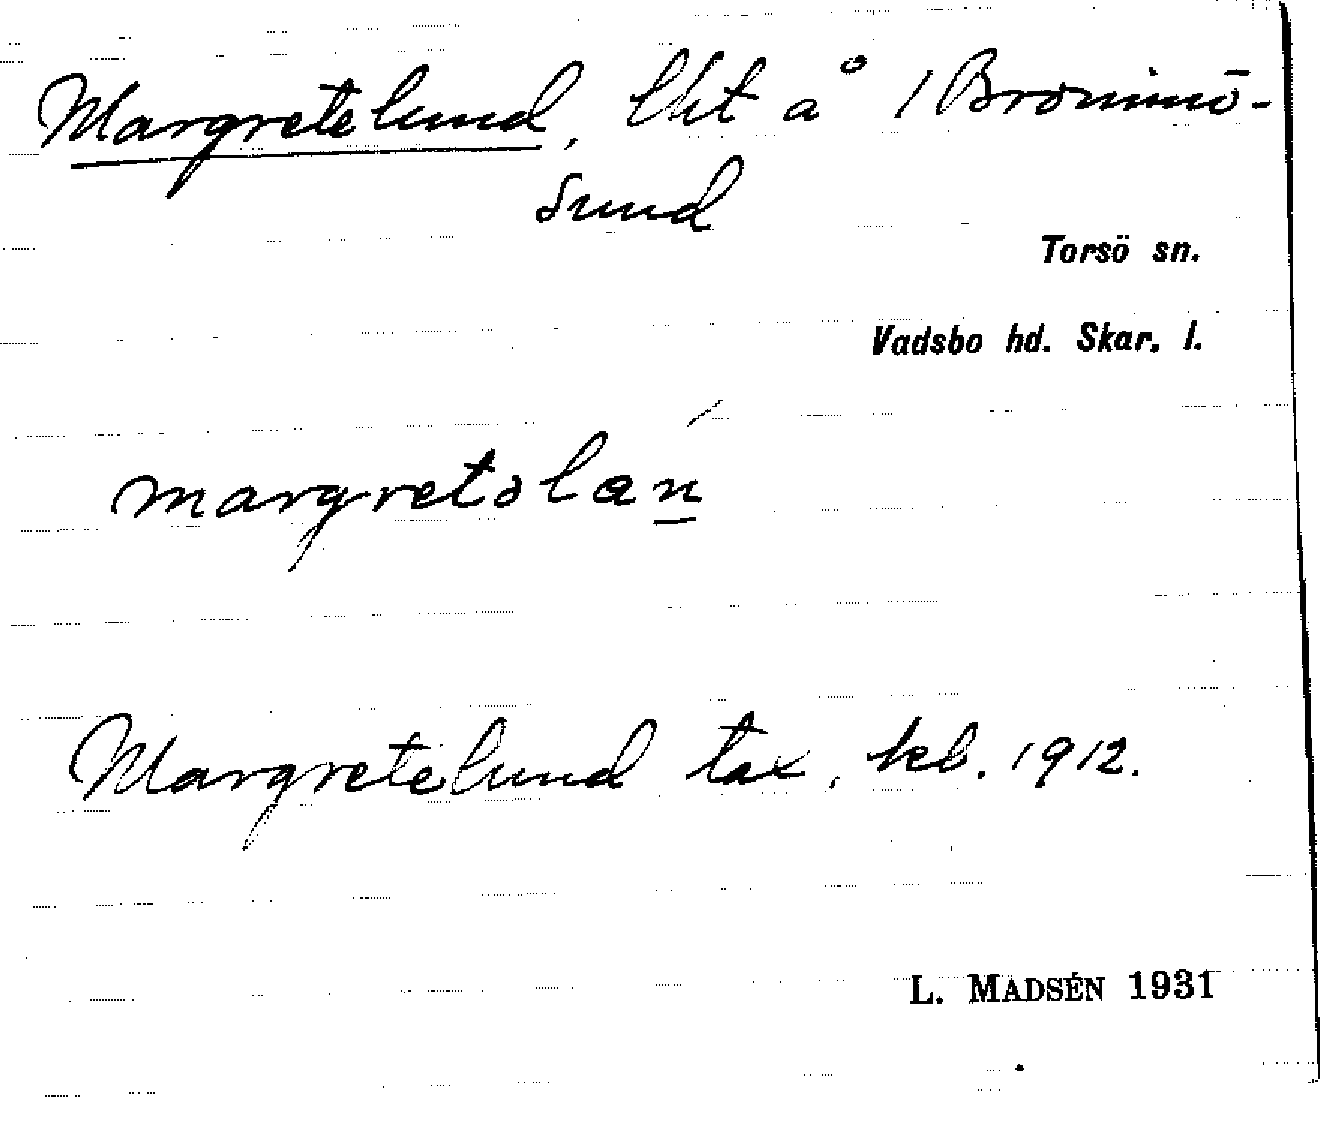 Margretelund, lht å 1 Brommö-
sund
Torsö sn.
Vadsbo hd. Skar. l.
margretəlaṉ
Margretelund tax. kl. 1912.
L. MADSÉN 1931